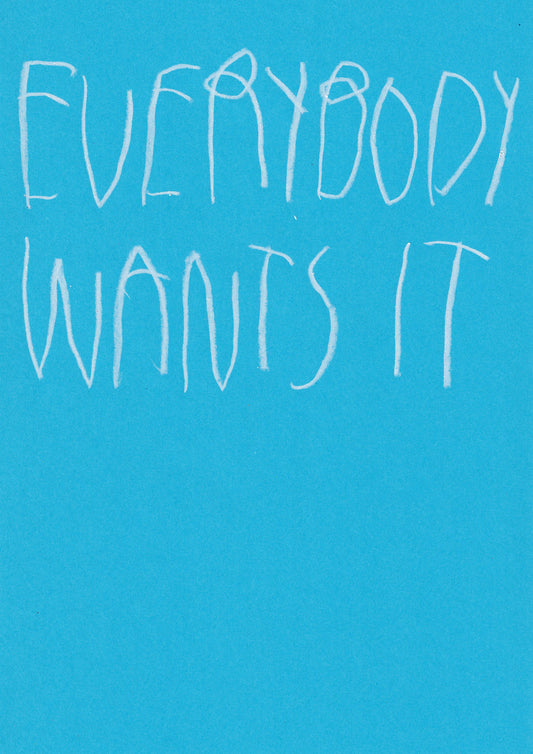 EVERYBODY
WANTS IT